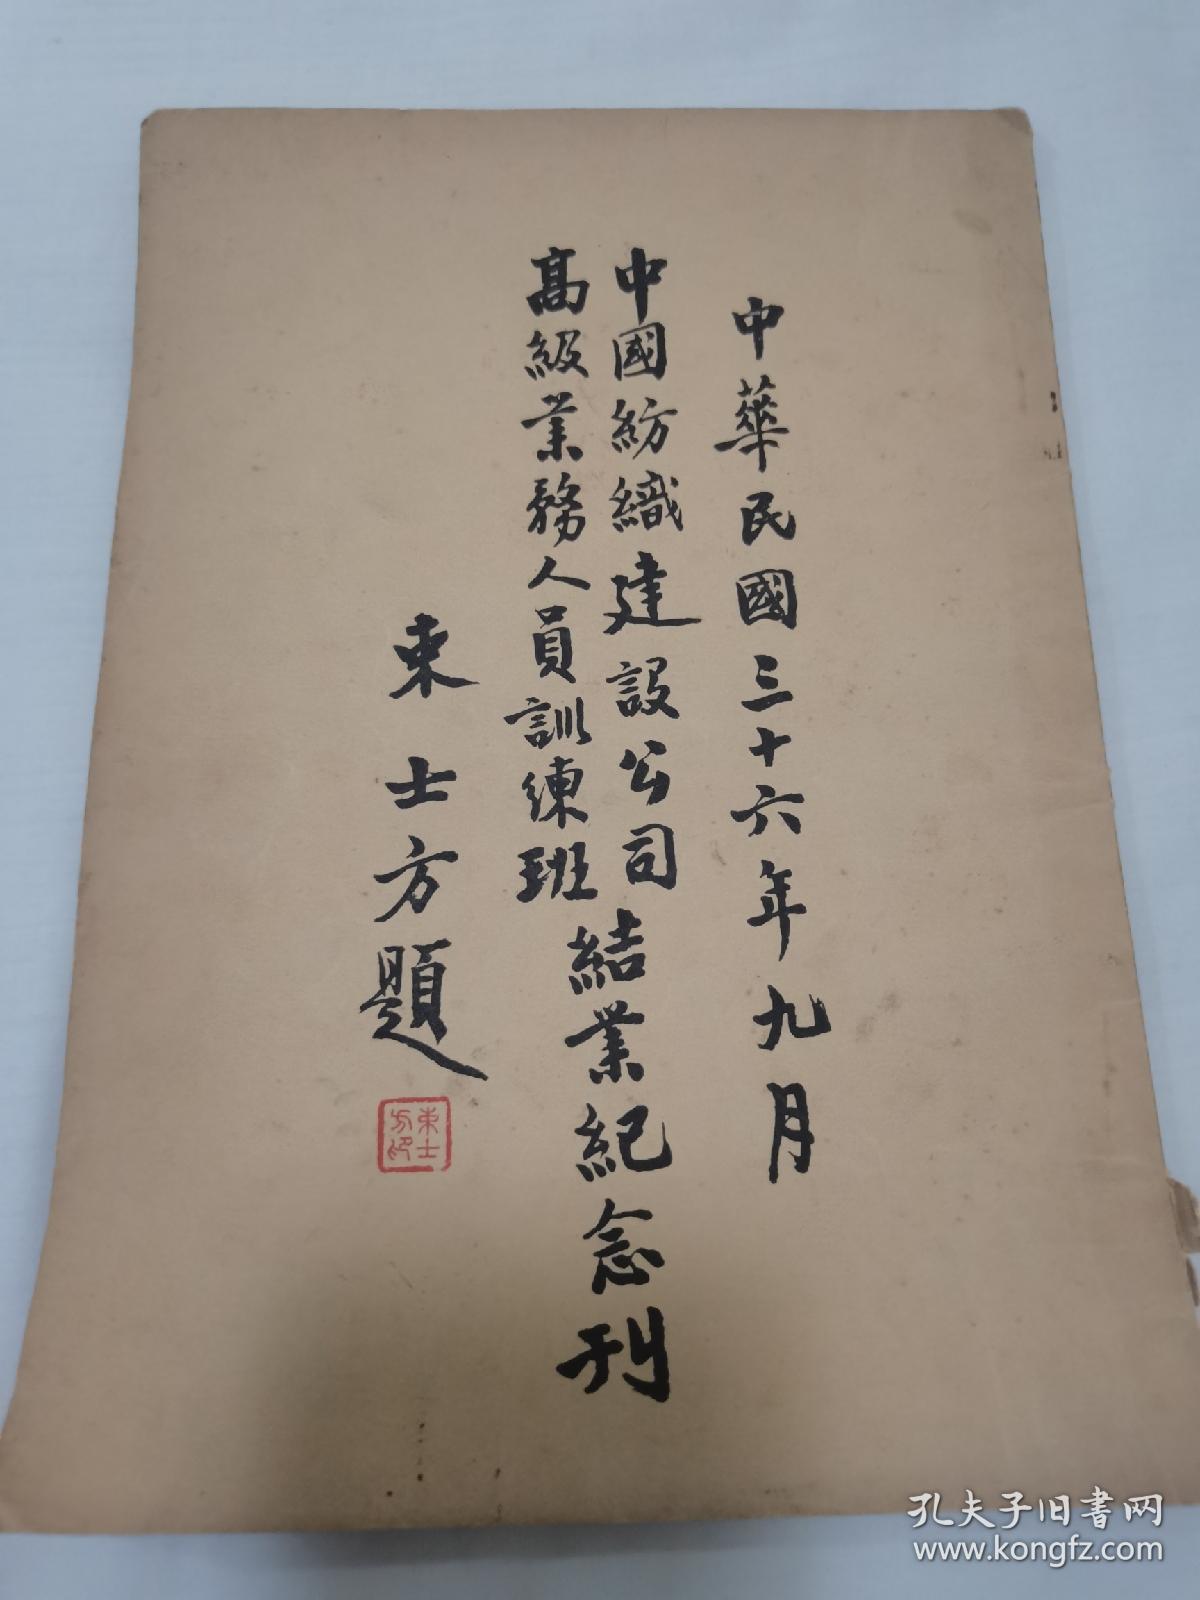 中華民國三十六年九月
中國紡織建設公司
高級業務人員訓練班
結業紀念刊
束士方題
束士方印
孔夫子旧書网
www.kongfz.com